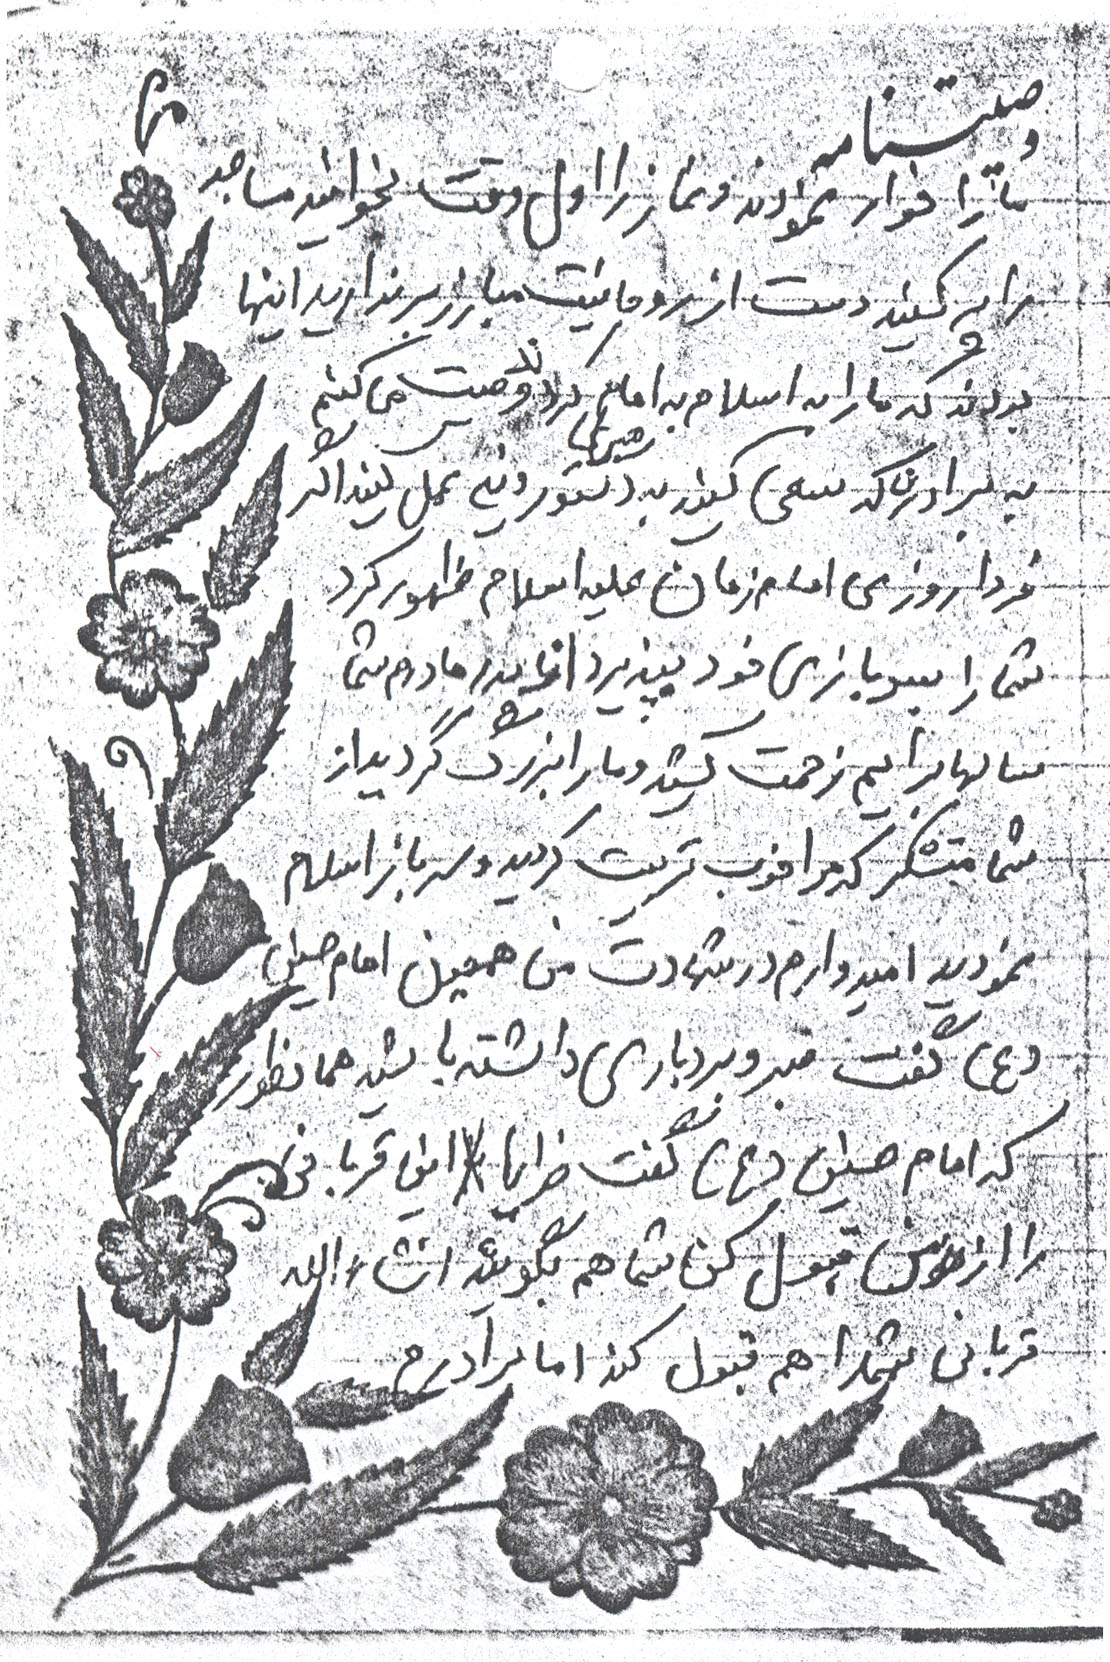 وصیتنامه
ما را خوار نمودند و نماز را اول وقت بخوانید مساجد
را پر کنید دست از روحانیت مبارز برندارید اینها
بودند که ما را به اسلام به امام کردند وصیت می کنم
به برادرانم که سعی کنید به دستورهای دینی عمل کنید اگر
فردا روزی امام زمان علیه السلام ظهور کرد
شما را به سربازی خود بپذیرد پدر مادرم شما
سالها برایم زحمت کشید و ما را بزرگ کردید از
شما متشکرم که مرا خوب تربیت کردید و سرباز اسلام
نمودید امیدوارم در شهادت من همچون امام حسین
(ع) گفت صبر و بردباری داشته باشید همانطور
که امام حسین (ع) گفت خدایا این قربانی
را از من قبول کن شما هم بگوئید انشاءالله
قربانی شما را هم قبول کند اما برادرم